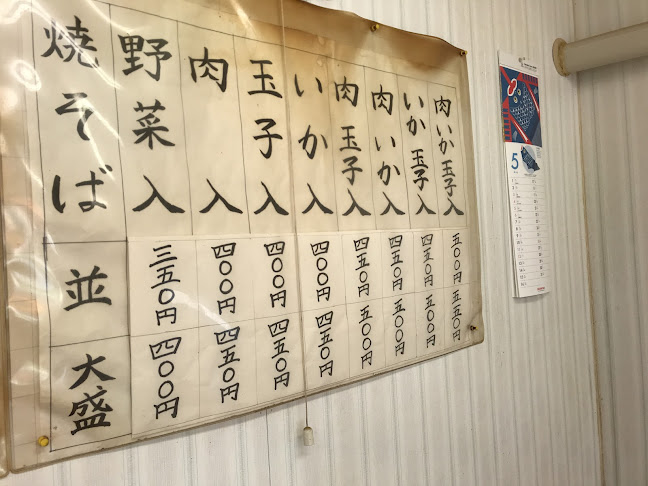 焼そば
並
大盛
野菜入
三五〇円
四〇〇円
肉入
四〇〇円
四五〇円
玉子入
四〇〇円
四五〇円
いか入
四〇〇円
四五〇円
肉玉子入
四五〇円
五〇〇円
肉いか入
四五〇円
五〇〇円
いか玉子入
四五〇円
五〇〇円
肉いか玉子入
五〇〇円
五五〇円
5